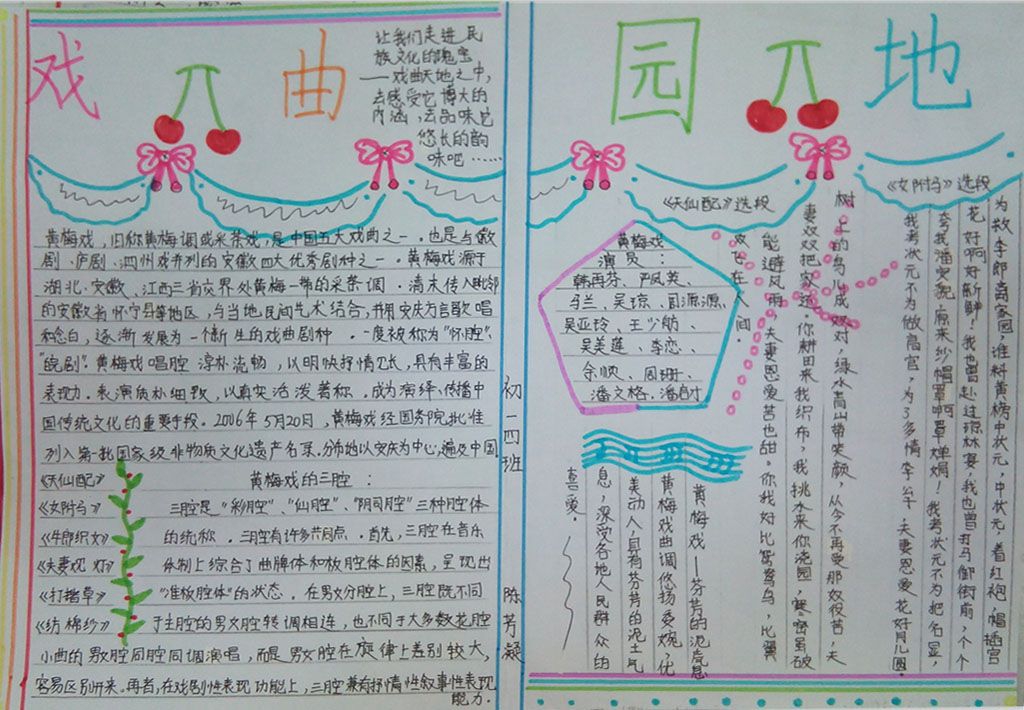 戏曲园地
让我们走进民
族文化的瑰宝
——戏曲天地之中,
去感受它博大的
内涵,去品味它
悠长的韵
味吧……
黄梅戏,旧称黄梅调或采茶戏,是中国五大戏曲之一.也是与徽
剧、庐剧、泗州戏并列的安徽四大优秀剧种之一.黄梅戏源于
湖北、安徽、江西三省交界处黄梅一带的采茶调.清末传入毗邻
的安徽省怀宁县等地区,与当地民间艺术结合,并用安庆方言歌唱
和念白,逐渐发展为一个新生的戏曲剧种.一度被称为"怀腔"、
"皖剧".黄梅戏唱腔淳朴流畅,以明快抒情见长,具有丰富的
表现力.表演质朴细致,以真实活泼著称.成为演绎、传播中
国传统文化的重要手段.2006年5月20日,黄梅戏经国务院批准
列入第一批国家级非物质文化遗产名录.分布地以安庆为中心,遍及中国
《天仙配》
《女附马》
《牛郎织女》
《夫妻观灯》
《打猪草》
《纺棉纱》
黄梅戏的三腔:
三腔是"彩腔"、"仙腔"、"阴司腔"三种腔体
的统称.三腔有许多共同点.首先,三腔在音乐
体制上综合了曲牌体和板腔体的因素,呈现出
"准板腔体"的状态.在男女分腔上,三腔既不同
于主腔的男女腔转调相连,也不同于大多数花腔
小曲的男女腔同腔同调演唱,而是男女腔在旋律上差别较大,
容易区别开来.再者,在戏剧性表现功能上,三腔兼有抒情性叙事性表现
能力.
初一四班
陈芳凝
《女附马》选段
为救李郎离家园,谁料黄榜中状元,中状元,着红袍,帽插宫
花,好啊好新鲜!我也曾赴过琼林宴,我也曾打马御街前,个个
夸我潘安貌,原来纱帽罩啊罩婵娟!我考状元不为把名显,
我考状元不为做高官,为了多情李公子,夫妻恩爱花好月儿圆.
《天仙配》选段
树上的鸟儿成双对,绿水青山带笑颜,从今不再受那奴役苦,夫
妻双双把家还.你耕田来我织布,我挑水来你浇园,寒窑虽破
能避风雨,夫妻恩爱苦也甜.你我好比鸳鸯鸟,比翼
双飞在人间.
黄梅戏
演员:
韩再芬、严凤英、
马兰、吴琼、
吴亚玲、王少舫、
吴美莲、李恋、
余顺、周珊、
潘文格、潘启才
黄梅戏——芬芳的泥土气息
黄梅戏曲调悠扬委婉,优
美动人,具有芬芳的泥土气
息,深受各地人民群众的
喜爱.